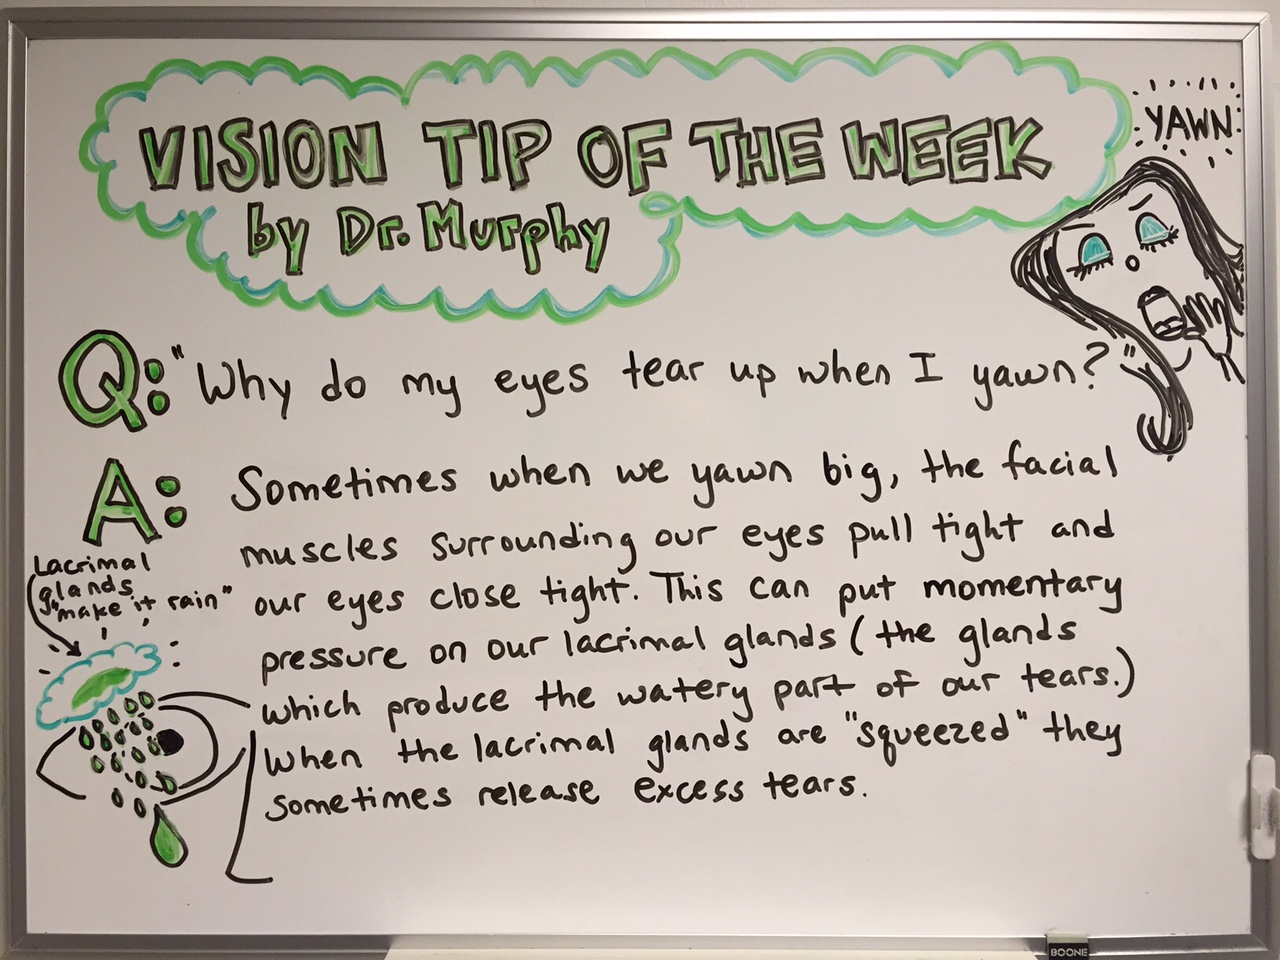 VISION TIP OF THE WEEK
by Dr. Murphy
YAWN
Q: "Why do my eyes tear up when I yawn?"
A: Sometimes when we yawn big, the facial
muscles surrounding our eyes pull tight and
our eyes close tight. This can put momentary
pressure on our lacrimal glands (the glands
which produce the watery part of our tears.)
When the lacrimal glands are "squeezed" they
sometimes release excess tears.
Lacrimal
glands
"make it rain"
BOONE